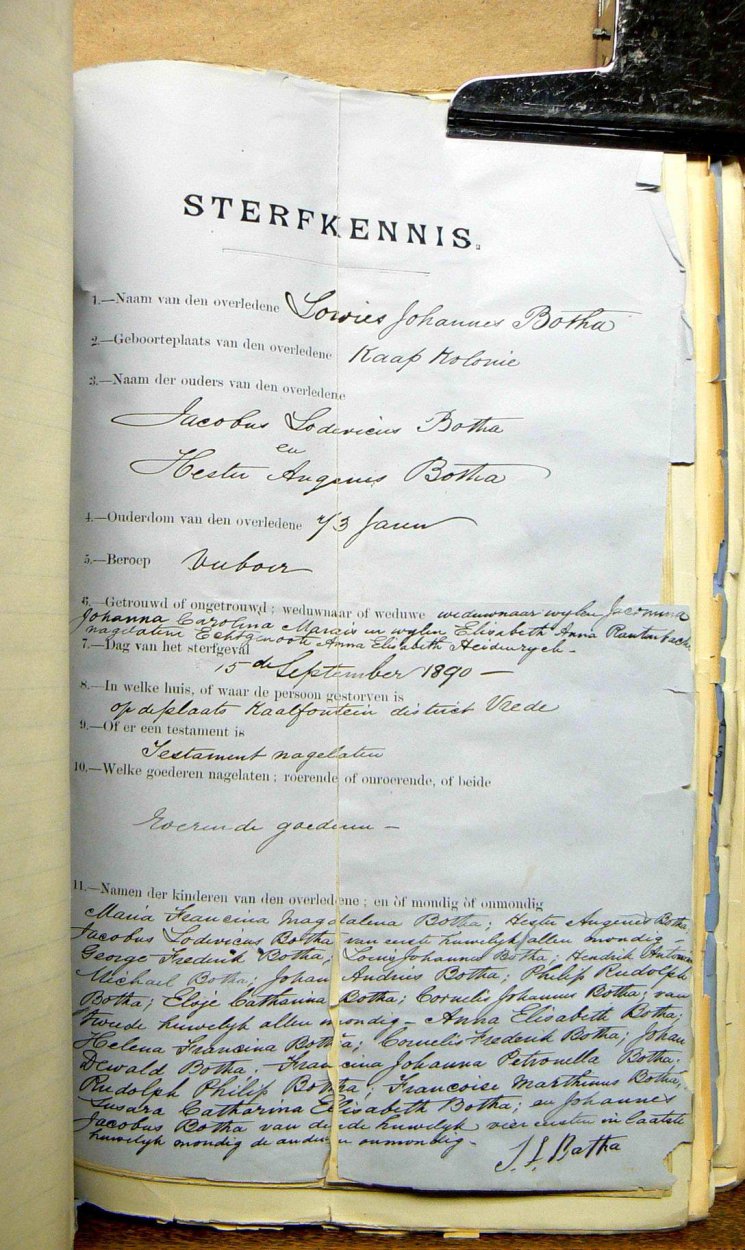 STERFKENNIS.
1.—Naam van den overledene Lowies Johannes Botha
2.—Geboorteplaats van den overledene Kaap Kolonie
3.—Naam der ouders van den overledene
Jacobus Lodevicus Botha
en
Hester Augenis Botha
4.—Ouderdom van den overledene 73 Jaren
5.—Beroep Veeboer
6.—Getrouwd of ongetrouwd ; weduwnaar of weduwe weduwnaar wylen Jacomina
Johanna Carolina Marais en wylen Elisabeth Anna Rautenbach
nagelatene Echtgenoote Anna Elisabeth Heidenrych -
7.—Dag van het sterfgeval
15 de September 1890 —
8.—In welke huis, of waar de persoon gestorven is
op de plaats Kaalfontein district Vrede
9.—Of er een testament is
Testament nagelaten
10.—Welke goederen nagelaten ; roerende of onroerende, of beide
Roerende goederen —
11.—Namen der kinderen van den overledene ; en òf mondig òf onmondig
Maria Francina Magdalena Botha ; Hester Augenis Botha ;
Jacobus Lodevicus Botha van eerste huwelyk allen mondig —
George Frederik Botha ; Louis Johannes Botha ; Hendrik
Michael Botha ; Johan Andries Botha ; Philip Rudolph
Botha ; Catharina Botha ; Cornelis Johannes Botha ; van
Tweede huwelyk allen mondig - Anna Elisabeth Botha ;
Helena Francina Botha ; Cornelis Frederik Botha ; Johan
Dewald Botha ; Francina Johanna Petronella Botha ;
Rudolph Philip Botha ; Francoise Marthinus Botha ;
Susara Catharina Elisabeth Botha ; en Johannes
Jacobus Botha van derde huwelyk vier eersten in laatste
huwelyk mondig de anderen onmondig -
J L Botha